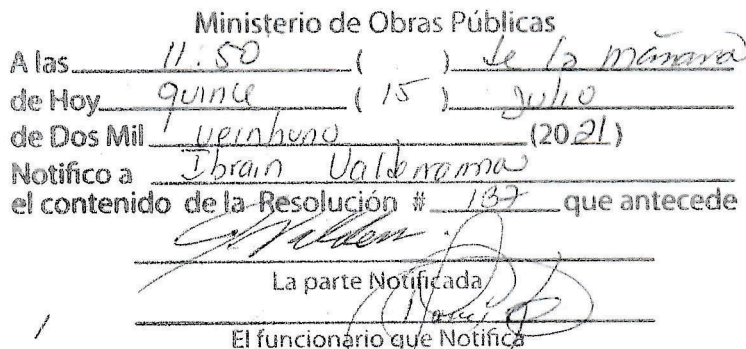 Ministerio de Obras Públicas
A las 11:50 ( ) de la mañana
de Hoy quince ( 15 ) Julio
de Dos Mil veintiuno (2021)
Notifico a Ibrain Valderrama
el contenido de la Resolución # 137 que antecede
La parte Notificada
El funcionario que Notifica